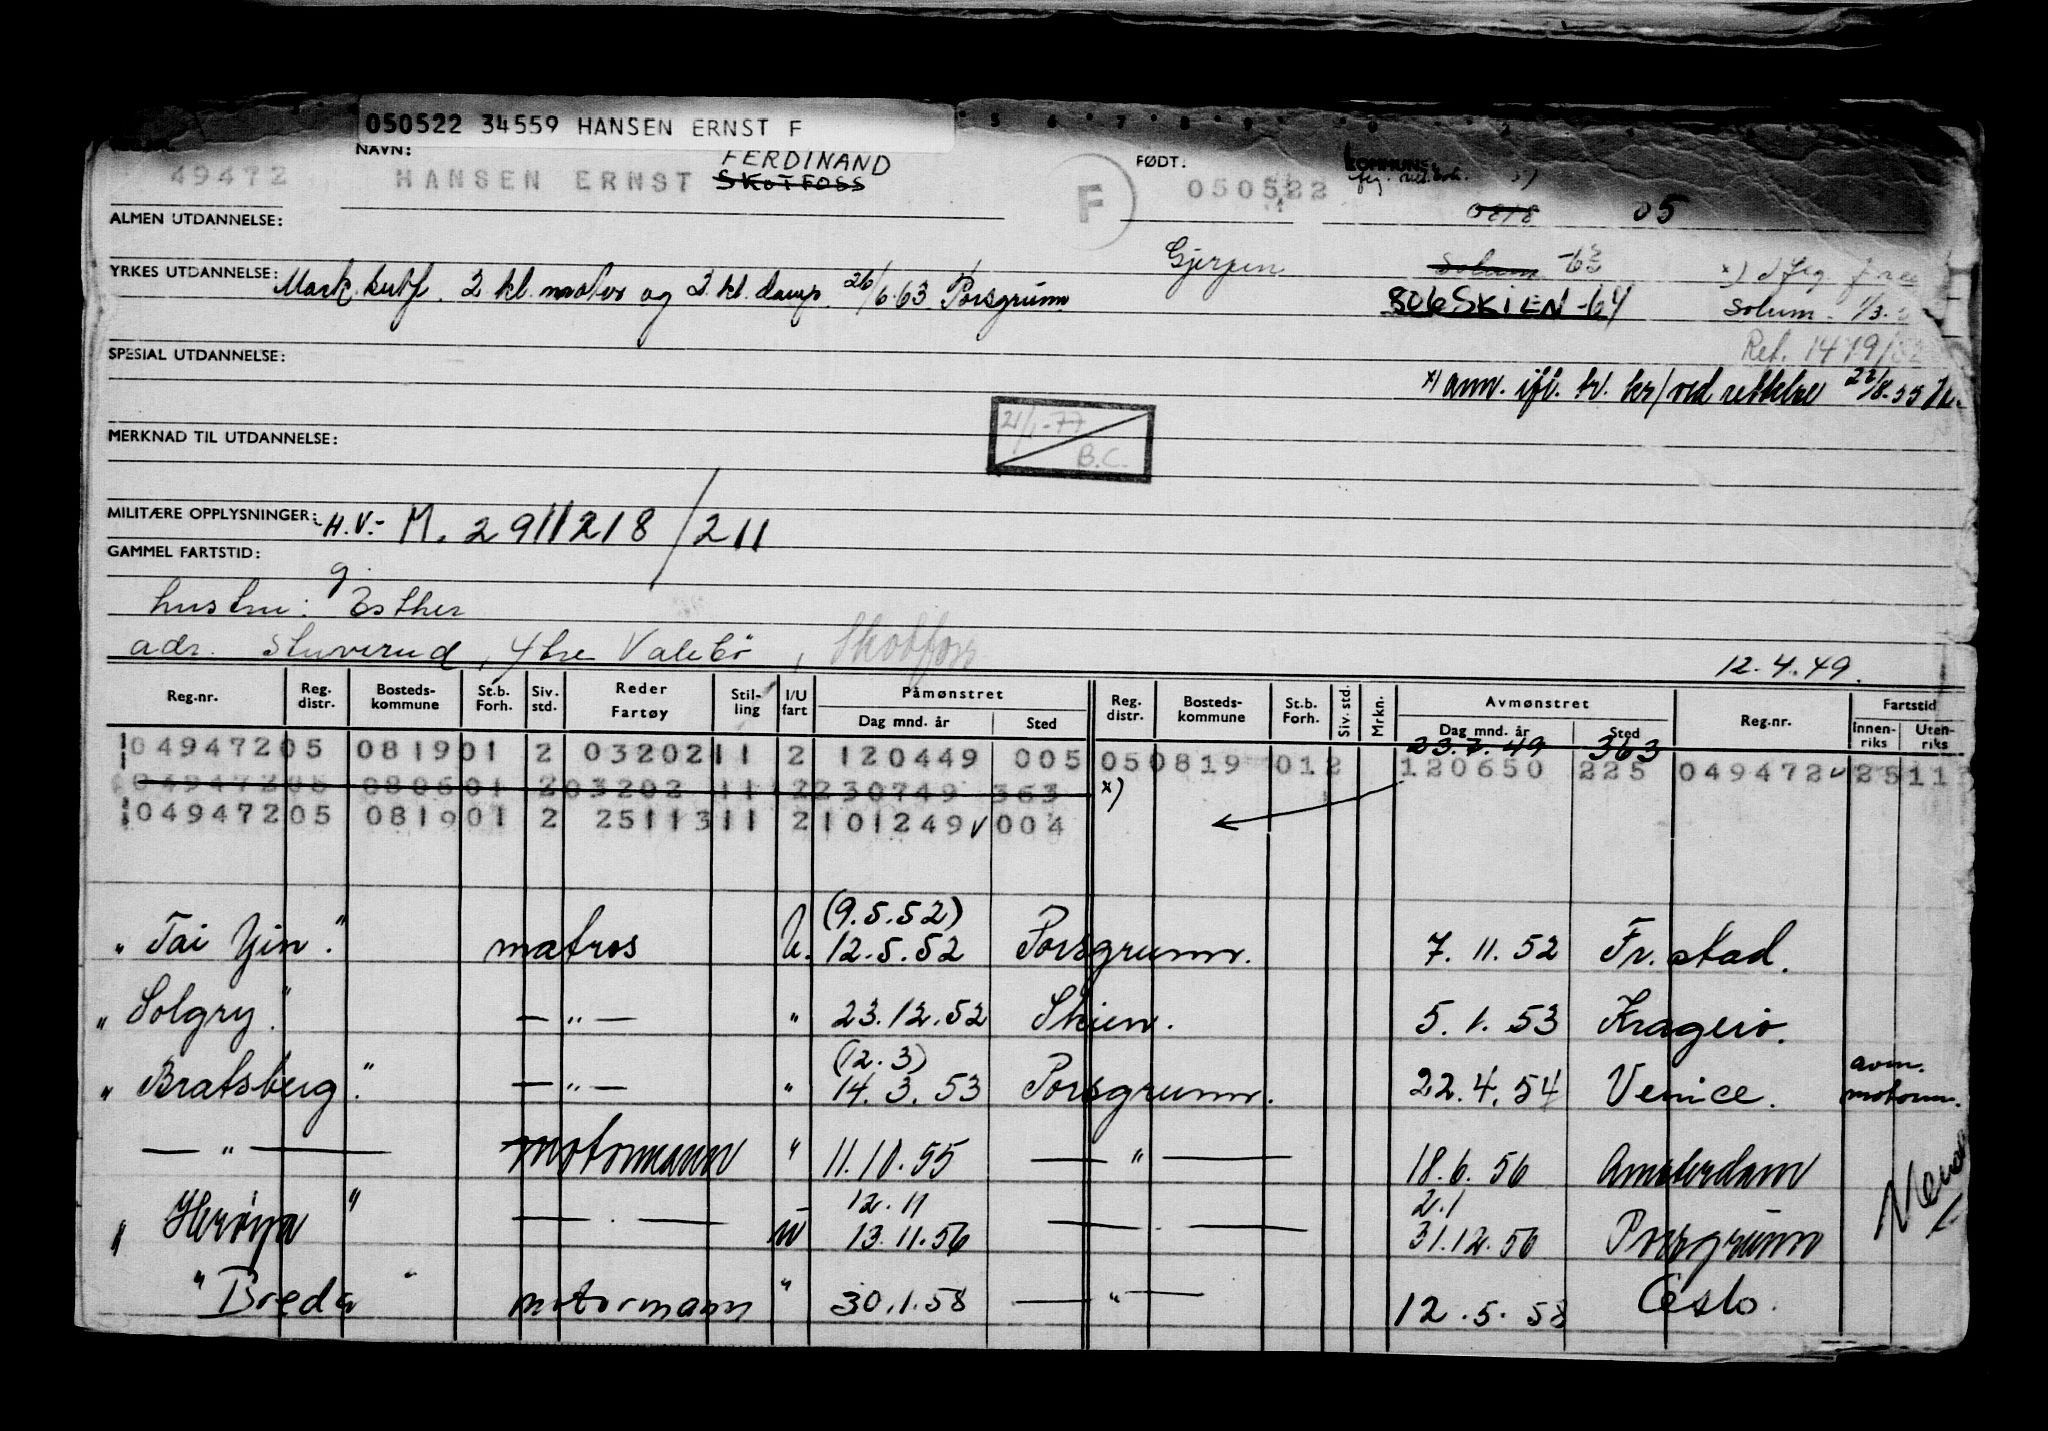 050522 34559 HANSEN ERNST F
NAVN: FERDINAND FØDT: KOMMUNE:
49472 HANSEN ERNST SKOTFOSS F 050522
ALMEN UTDANNELSE: 0818 05
Gjerpen Solum -63
YRKES UTDANNELSE: Mask. sertf. 2 kl. motor og 2 kl. damp. 26/6.63 Porsgrunn.
806 SKIEN -64 Solum. 1/3.
SPESIAL UTDANNELSE: Ret. 1479/52
x) ann. ifl. tv. ker/ved rettelse 22/8.55
21/1-77 B.C.
MERKNAD TIL UTDANNELSE:
MILITÆRE OPPLYSNINGER: H.V.- M. 2911218/211
GAMMEL FARTSTID:
g
hustru: Esther
adr. Sluverud, Ytre Valebø, Skotfoss 12.4.49.
Reg.nr. Reg. distr. Bosteds-kommune St.b. Forh. Siv. std. Reder Fartøy Stil-ling I/U fart Påmønstret Dag mnd. år Sted Reg. distr. Bosteds-kommune St.b. Forh. Siv. std. Mrkn. Avmønstret Dag mnd. år Sted Reg.nr. Fartstid Innen-riks Uten-riks
23.7.49 363
049472 05 0819 01 2 03202 11 2 120449 005 05 0819 01 2 120650 225 049472 v 25 11
049472 05 0806 01 2 03202 11 2 230749 363 x)
049472 05 0819 01 2 25113 11 2 101249 v 004
(9.5.52)
"Tai Yin." matros U. 12.5.52 Porsgrunn. 7.11.52 Fr.stad.
"Solgry." — " — " 23.12.52 Skien. 5.1.53 Kragerø.
(12.3) avm.
"Bratsberg." — " — " 14.3.53 Porsgrunn. 22.4.54 Venice. motorm.
— " — motormann " 11.10.55 — " — 18.6.56 Amsterdam
12.11 2.1
"Herøya" — . — U 13.11.56 — . — 31.12.56 Porsgrunn
"Breda" motormann " 30.1.58 — " — 12.5.58 Oslo.